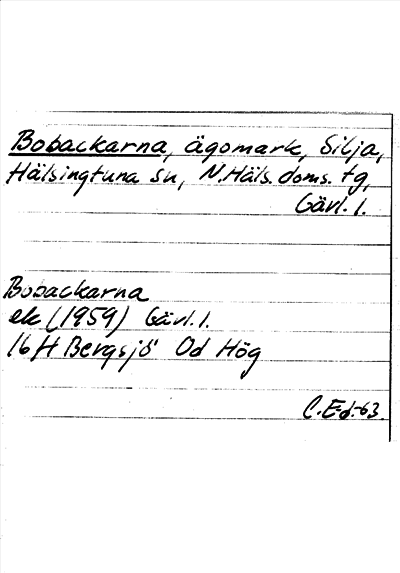 Bobackarna, ägomark, Silja,
Hälsingtuna sn, N.Häls. doms. tg,
Gävl. l.
Bobackarna
ek (1959) Gävl. l.
16H Bergsjö Od Hög
C.Ed-63.